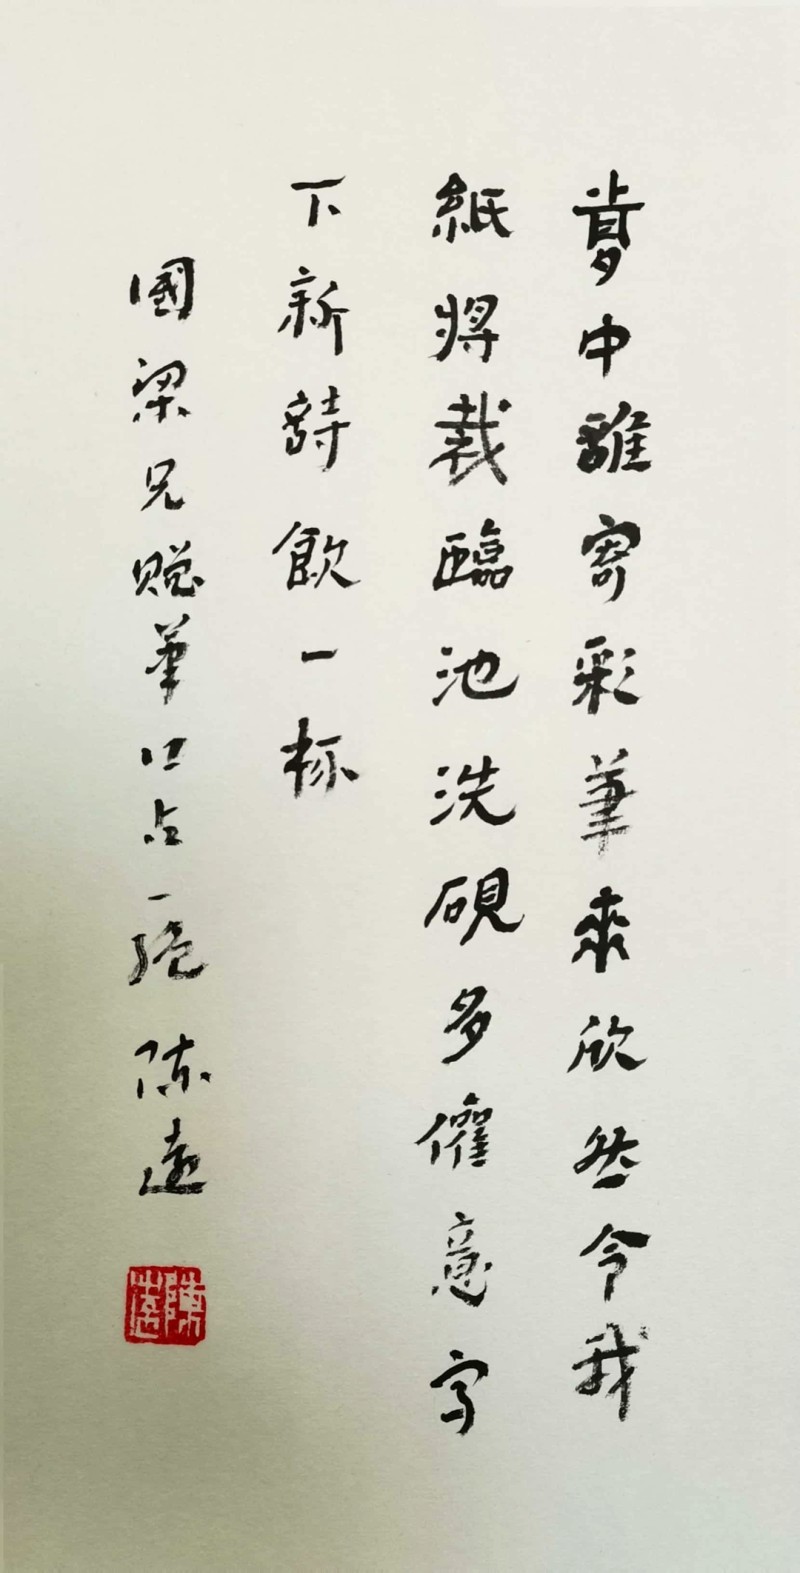 夢中誰寄彩筆來欣然令我
紙將裁臨池洗硯多懽意寫
下新詩飲一杯
國梁兄贈筆口占一絕陳遠
陳遠